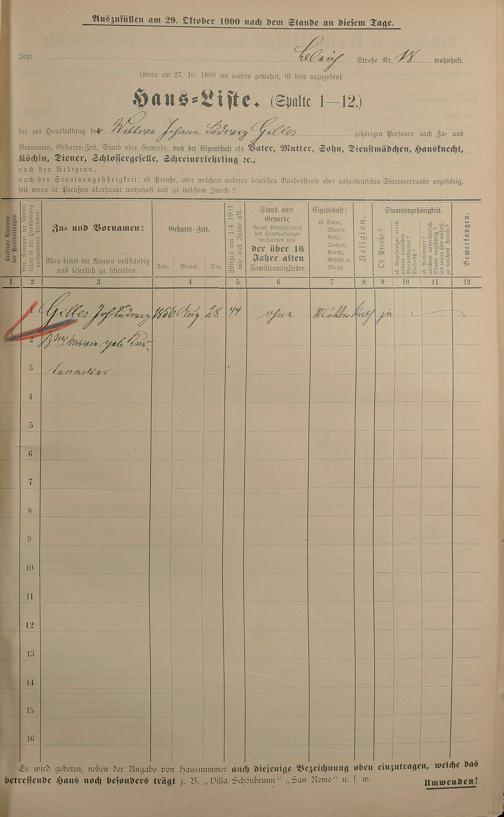 Auszufüllen am 29. Oktober 1900 nach dem Stande an diesem Tage.
Jetzt Straße Nr. 18 wohnhaft.
(wenn am 27. 10. 1899 wo anders gewohnt, ist dies anzugeben)
Haus-Liste. (Spalte 1—12.)
der zur Haushaltung der Wittwe Johann Ludwig Gilles gehörigen Personen nach Zu- und
Vornamen, Geburts-Zeit, Stand oder Gewerbe, nach der Eigenschaft als Vater, Mutter, Sohn, Dienstmädchen, Hausknecht,
Köchin, Diener, Schlossergeselle, Schreinerlehrling &c.,
nach der Religion,
nach der Staatsangehörigkeit, ob Preuße, oder welchem anderen deutschen Bundesstaate oder außerdeutschen Staatsverbande angehörig,
seit wann in Preußen überhaupt wohnhaft und zu welchem Zwecke?
Zu- und Vornamen:
Man bittet die Namen vollständig
und leserlich zu schreiben.
Geburts-Zeit.
Jahr. Monat. Tag.
Mithin am 1/4 1901
wie viel Jahre alt
Stand oder
Gewerbe
der über 16
Jahre alten
Familienmitglieder.
Eigenschaft:
ob Vater,
Mutter,
Sohn,
Tochter,
Knecht,
Geselle o.
Magd.
Religion.
Staatsangehörigkeit.
Ob Preuße?
Bemerkungen.
1 2 3 4 5 6 7 8 9 10 11 12
1 Gilles Joh Ludwig 1856 Aug 28 44 ohne Mutter kath ja
2
3
4
5
6
7
8
9
10
11
12
13
14
15
16
Es wird gebeten, neben der Angabe von Hausnummer auch diejenige Bezeichnung oben einzutragen, welche das
betreffende Haus noch besonders trägt z. B. „Villa Schönbrunn“ „San Remo“ u. s. w.
Umwenden!